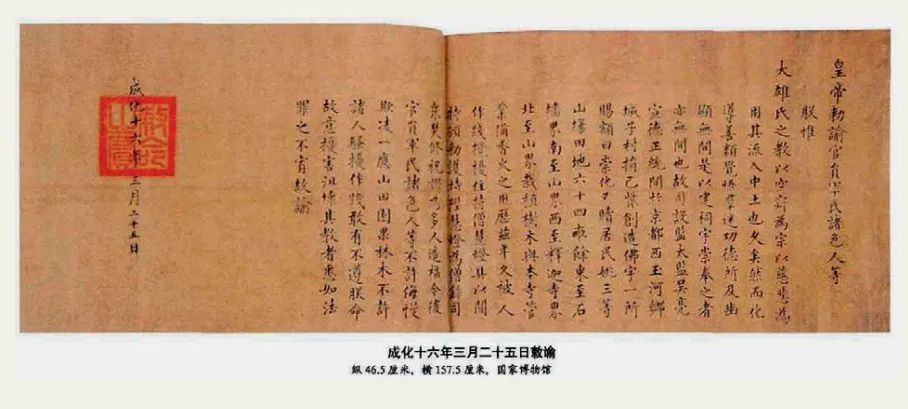 皇帝勅諭官員軍民諸色人等
朕惟
大雄氏之教以空寂為宗以慈悲為
用其流入中土也久矣然而化
導善類覺悟羣迷功德所及幽
顯無間是以建祠宇崇奉之者
亦無間也故司設監太監吳亮
宣德正統間於京都西玉河鄉
城子村捐己貲創造佛宇一所
賜額曰崇化居民姚三等
山場田地六十四畝餘東至石
墻界南至山界西至釋迦寺界
北至山界栽植樹木與本寺管
業備香火之用歷年久被人
作踐攪擾住持僧慧燈具以聞
特頒勅護持慧燈為僧錄司
焚修祝為多人造福今後
官員軍民諸色人等不許侮慢
欺凌一應山田園果林木不許
諸人騷擾作踐敢有不遵朕命
故意擾害沮壞其教者悉如法
罪之不宥故諭
成化十六年三月二十五日
敕命之寶
成化十六年三月二十五日敕谕
纵46.5厘米，横157.5厘米，国家博物馆